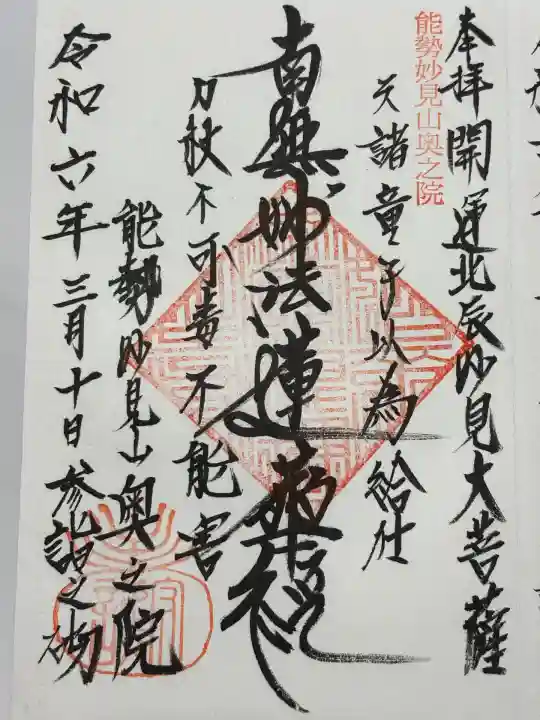 奉拝 開運北辰妙見大菩薩
能勢妙見山奥之院
天諸童子以為給仕
南無妙法蓮華経
刀杖不加毒不能害
能勢妙見山奥之院
令和六年三月十日参詣之砌